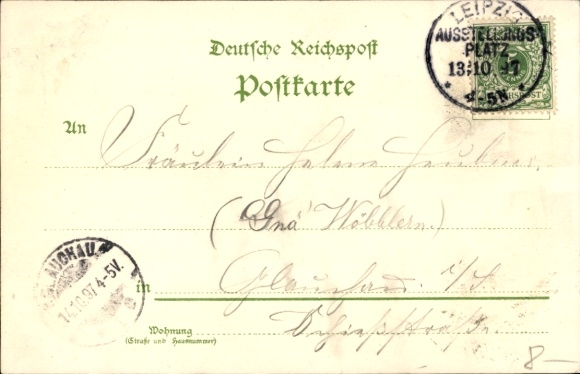 LEIPZIG
AUSSTELLUNGS
PLATZ
13.10.97
* 4-5N *
Deutsche Reichspost
Postkarte
An
Fräulein Helene
(Gnä' Wöbblern.)
GLAUCHAU
14.10.97 4-5V.
in Glauchau i/S
Schießstraße.
Wohnung
(Straße und Hausnummer)
8-